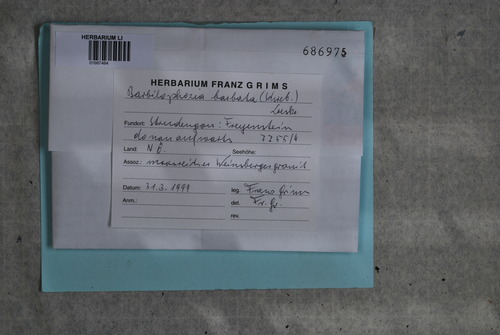 HERBARIUM LI
686975
HERBARIUM FRANZ GRIMS
Barbilophozia barbata (Schreb.)
Loeske
Fundort: Strudengau: Freyenstein
donauaufwärts 7755/4
Land: NÖ. Seehöhe:
Assoz.: moosreicher Weinsbergergranit
Datum: 31.3.1999 leg. Franz Grims
Anm.: det. Fr. Gr.
rev.